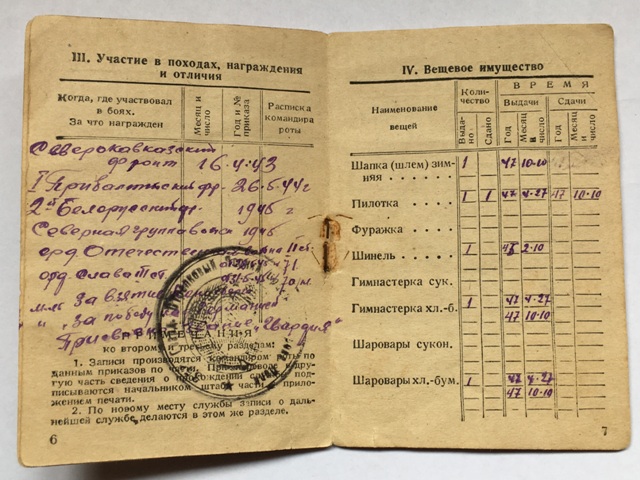 III. Участие в походах, награждения
и отличия
Когда, где участвовал
в боях.
За что награжден
Месяц и
число
Год и №
приказа
Расписка
командира
роты
Северокавказский
фронт 16.4.43
I Прибалтийский фр. 26.5.44 г
2й Белорусский фр. 1945 г
Северная группа войск 1945
орд Отечествен
орд Слава
мед За взятие
" "За победу
Присвоено "Гвардия"
ПРИМЕЧАНИЯ
ко второму и третьему разделам:
1. Записи производятся командиром роты по
данным приказов по части. При переводе в дру-
гую часть сведения о награждении
писываются начальником штаба части с прило-
жением печати.
2. По новому месту службы записи о даль-
нейшей службе делаются в этом же разделе.
6
IV. Вещевое имущество
Наименование
вещей
Коли-
чество
ВРЕМЯ
Выдачи
Сдачи
Выда-
но
Сдано
Год
Месяц
и
число
Год
Месяц
и
число
Шапка (шлем) зим-
няя . . . . . . 1 47 10-10
Пилотка . . . . 1 1 47 4-27 47 10-10
Фуражка . . . .
Шинель . . . . 1 2-10
Гимнастерка сук.
Гимнастерка хл.-б. 1 47 4-27
47 10-10
Шаровары сукон.
Шаровары хл.-бум. 1 47 4-27
47 10-10
7